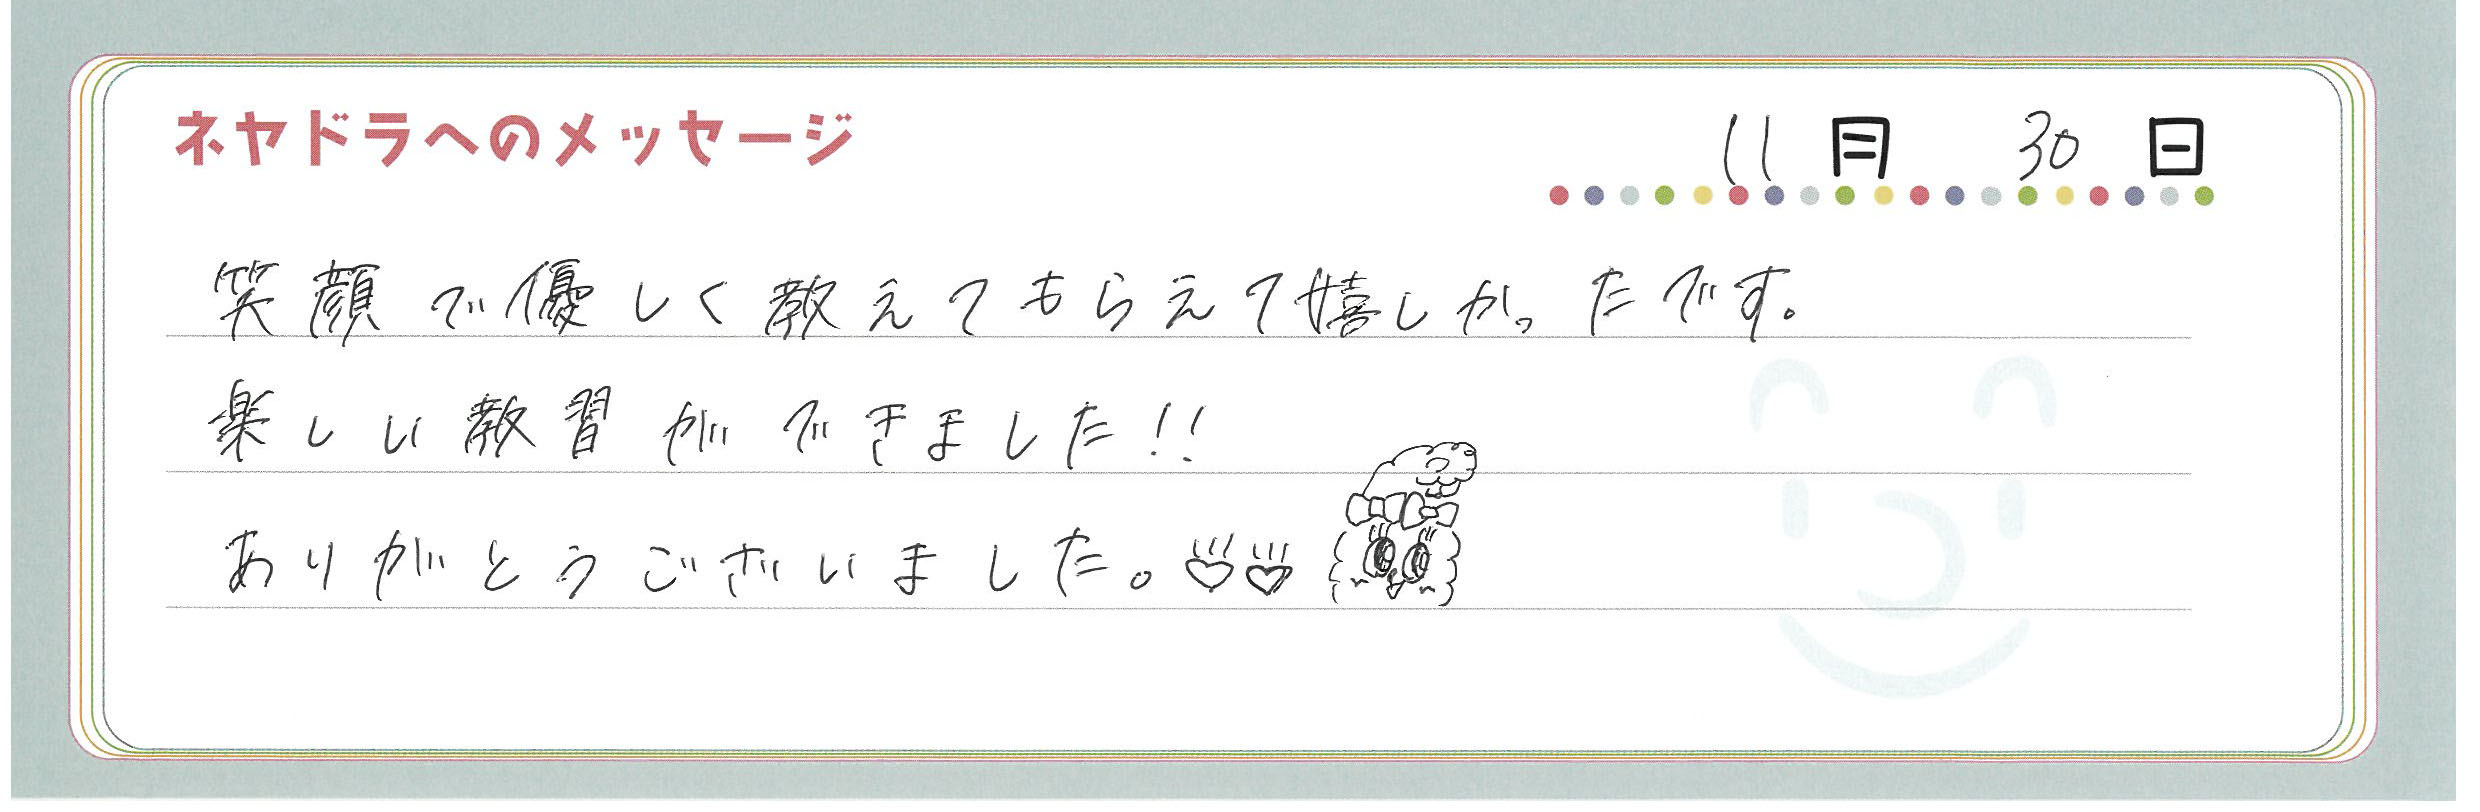 ネヤドラへのメッセージ 11月 30日
笑顔で優しく教えてもらえて嬉しかったです。
楽しい教習ができました!!
ありがとうございました。♡♡